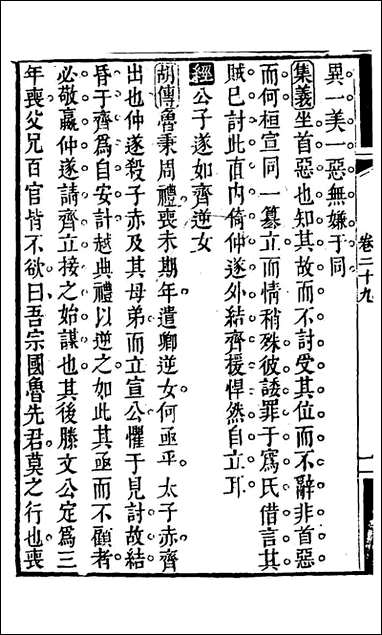 異一美一惡無嫌于同
集義坐首惡也知其故而不討受其位而不辭非首惡
而何桓宣同一簒立而情稍殊彼諉罪于寪氏借言其
賊已討此直內倚仲遂外結齊援悍然自立耳
經公子遂如齊逆女
胡傳魯秉周禮喪未期年遣卿逆女何亟乎太子赤齊
出也仲遂殺子赤及其母弟而立宣公懼于見討故結
昏于齊爲自安計越典禮以逆之如此其亟而不顧者
必敬嬴仲遂請齊立接之始謀也其後滕文公定爲三
年喪父兄百官皆不欲曰吾宗國魯先君莫之行也喪
卷二十九